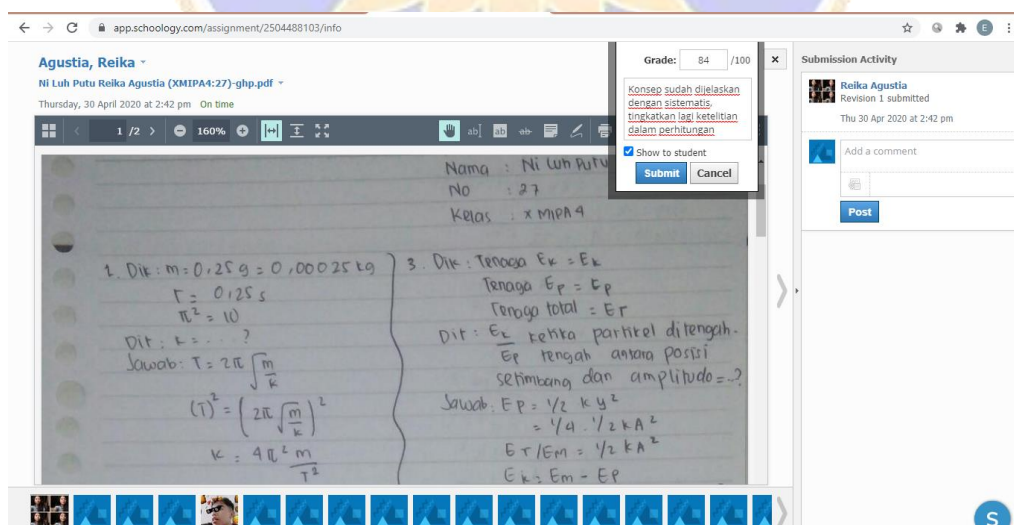 app.schoology.com/assignment/2504488103/info
E
Agustia, Reika
Ni Luh Putu Reika Agustia (XMIPA4:27)-ghp.pdf
Thursday, 30 April 2020 at 2:42 pm On time
1 /2
160%
Grade: 84 /100
Konsep sudah dijelaskan
dengan sistematis,
tingkatkan lagi ketelitian
dalam perhitungan
Show to student
Submit Cancel
Submission Activity
Reika Agustia
Revision 1 submitted
Thu 30 Apr 2020 at 2:42 pm
Add a comment
Post
Nama : Ni Luh Putu
No : 27
Kelas : X MIPA 4
1. Dik : m = 0,25 g = 0,00025 kg
T = 0,25 s
π² = 10
Dit : k = . . . ?
Jawab : T = 2π √m/k
(T)² = (2π √m/k)²
K = 4π² m/T²
3. Dik : Tenaga Ek = Ek
Tenaga Ep = Ep
Tenaga total = ET
Dit : Ek/Ep ketika partikel ditengah-
tengah antara posisi
setimbang dan amplitudo = ..?
Jawab : EP = 1/2 k y²
= 1/4 . 1/2 k A²
ET/EM = 1/2 k A²
Ek = Em - EP
S